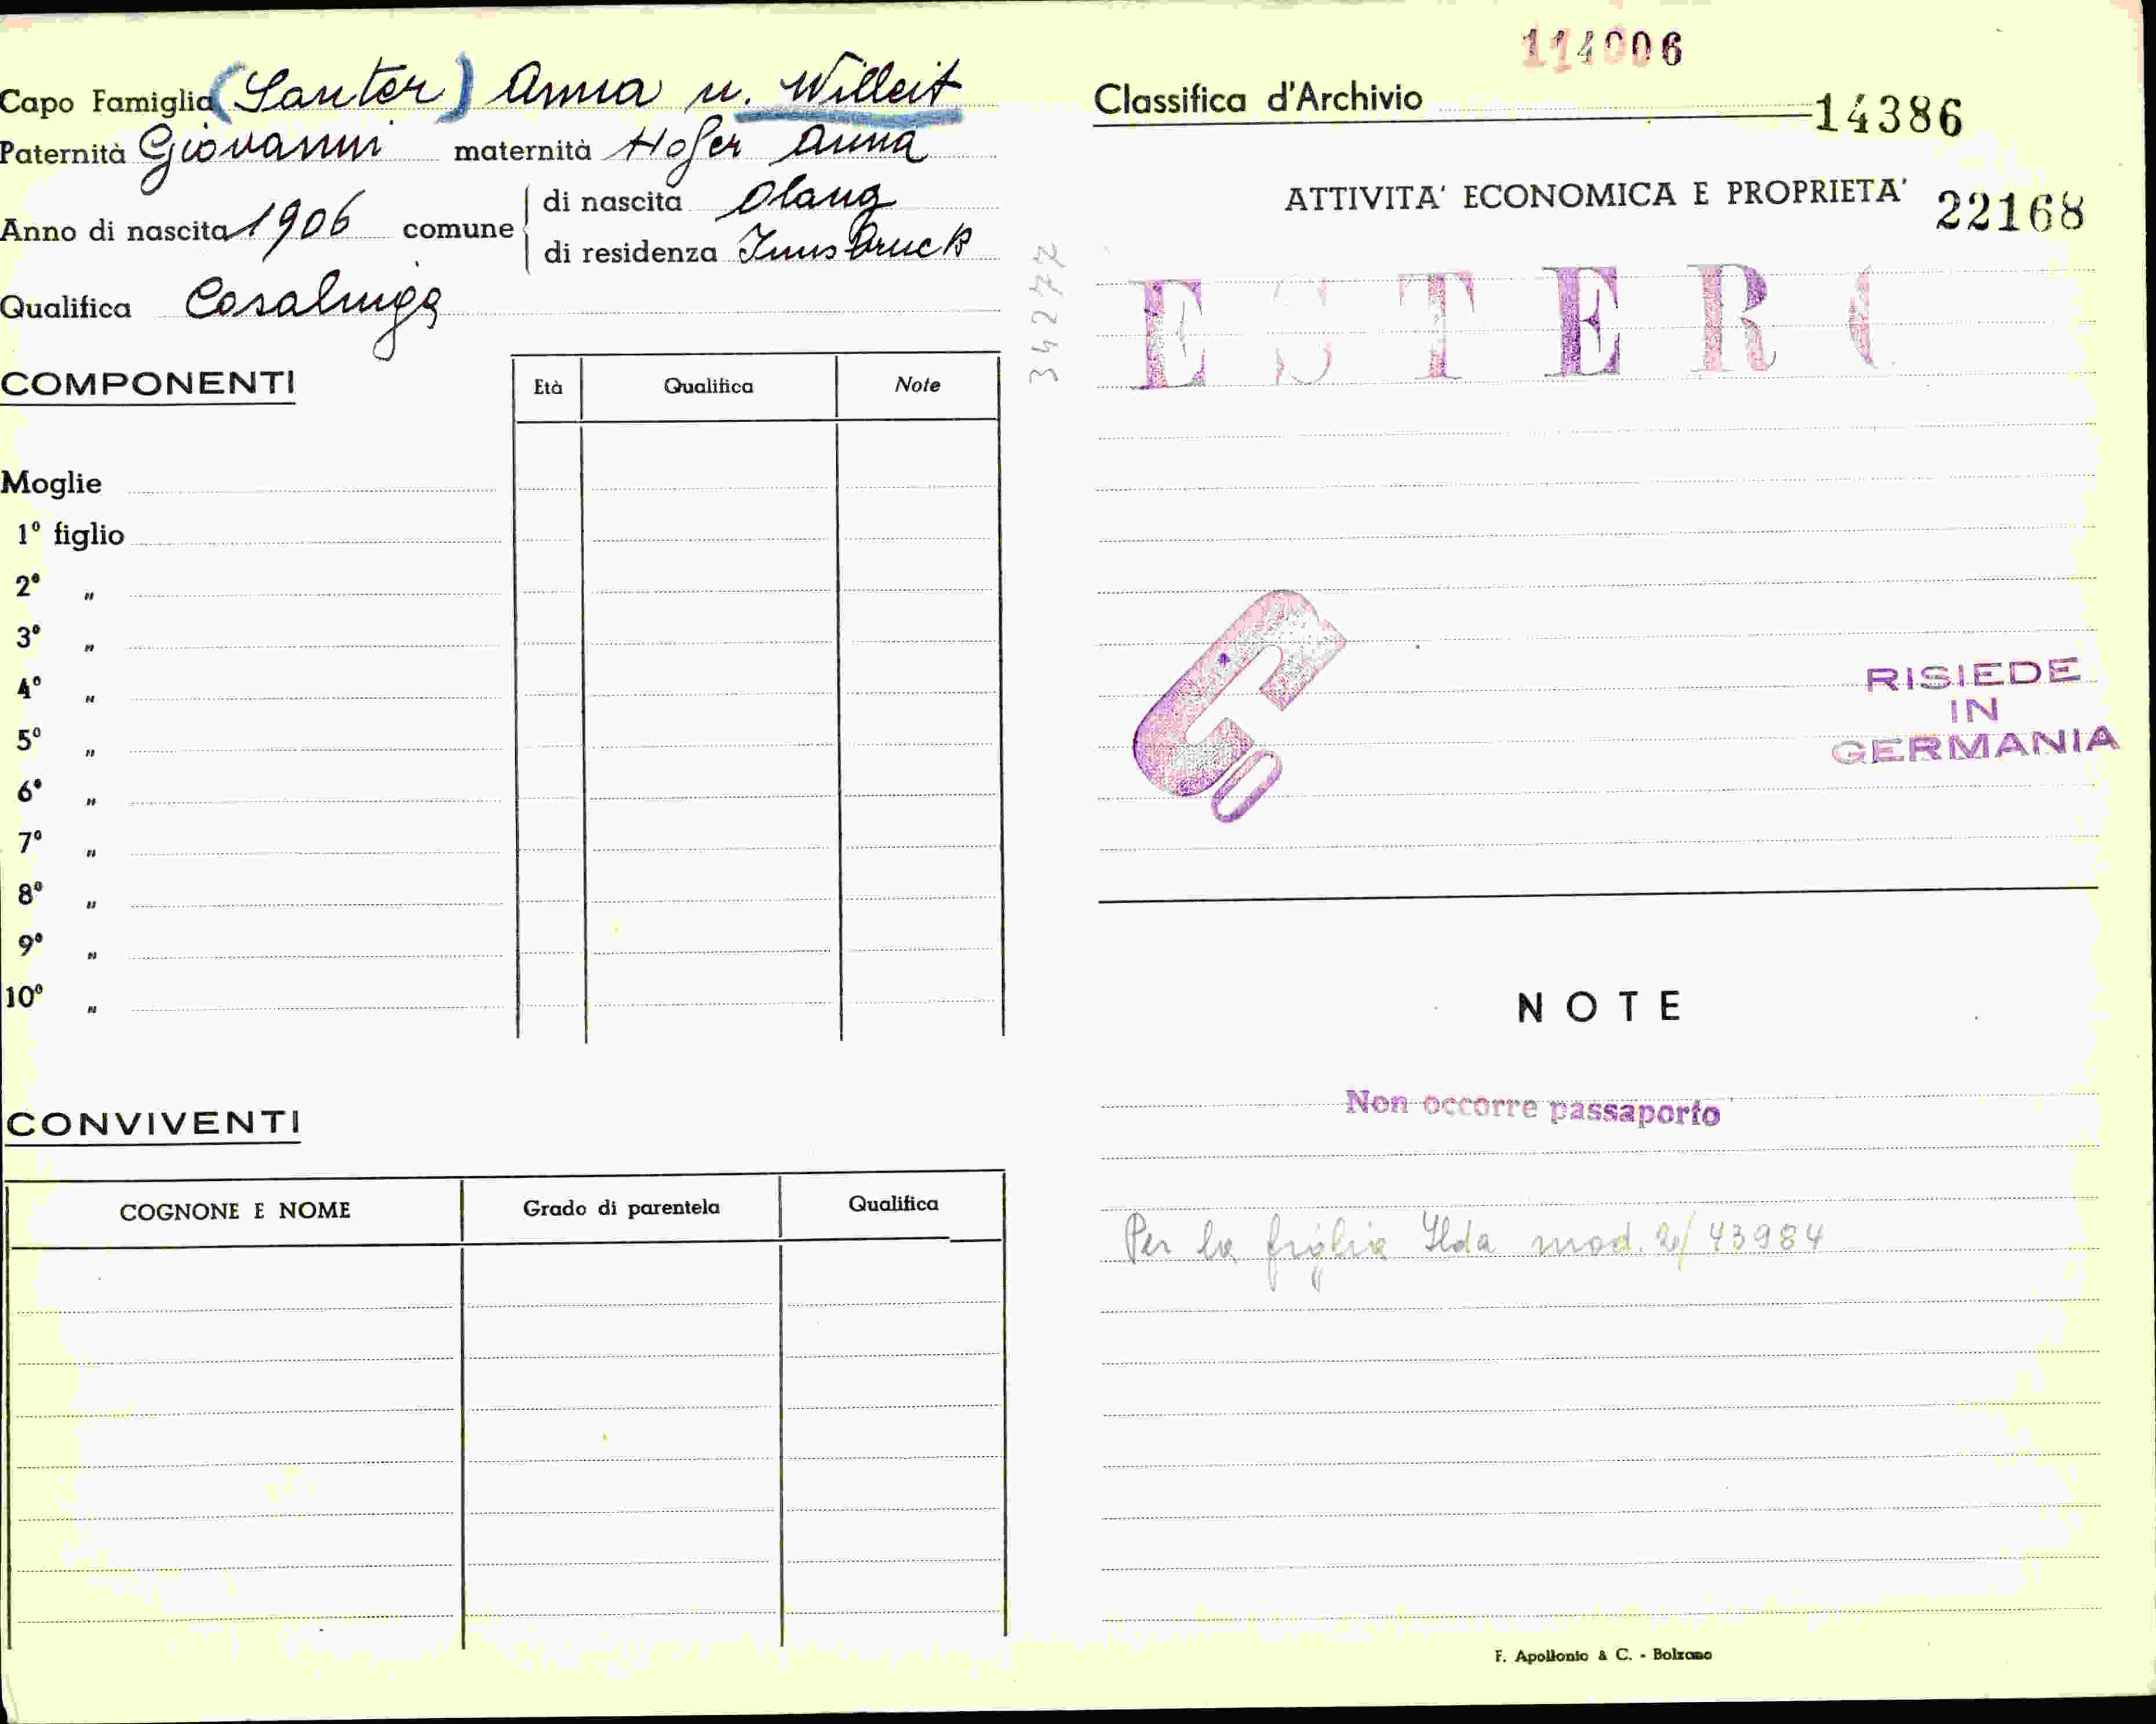 Capo Famiglia (Sauter) Anna n. Willeit
Paternità Giovanni maternità Hofer Anna
Anno di nascita 1906 comune
di nascita Olang
di residenza Innsbruck
Qualifica Casalinga
COMPONENTI
Età Qualifica Note
Moglie
1º figlio
2º "
3º "
4º "
5º "
6º "
7º "
8º "
9º "
10º "
CONVIVENTI
COGNONE E NOME Grado di parentela Qualifica
34277
114006
Classifica d'Archivio 14386
ATTIVITA' ECONOMICA E PROPRIETA' 22168
ESTERO
RISIEDE
IN
GERMANIA
NOTE
Non occorre passaporto
Per la figlia Ilda mod. 2/43984
F. Apollonio & C. - Bolzano